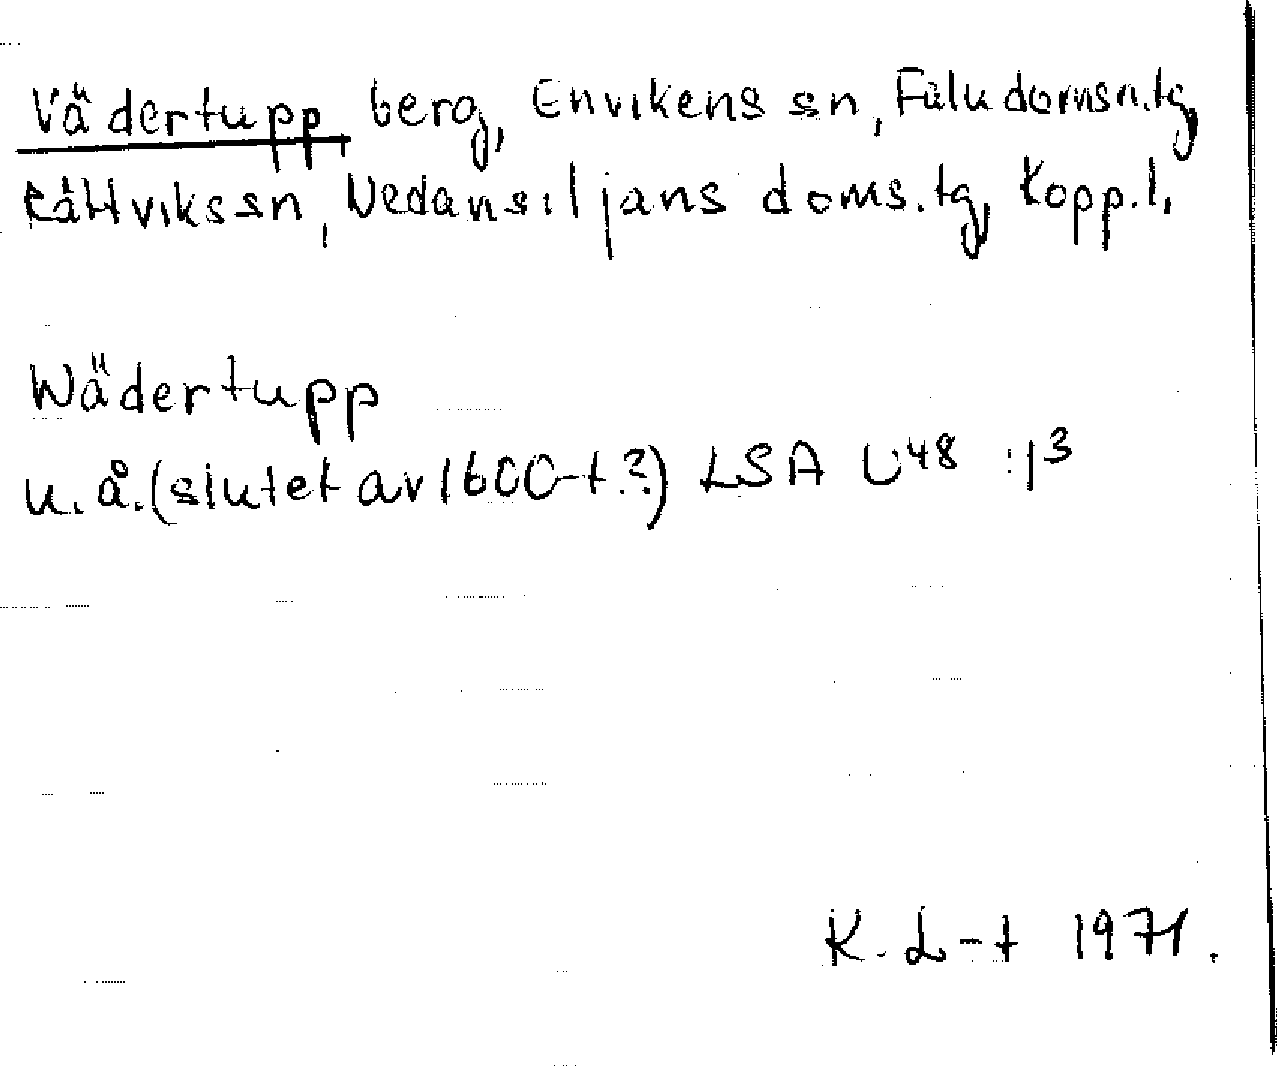 Vädertupp, berg, Envikens sn, Falu domsn.tg,
Rättviks sn, Nedansiljans doms.tg, Kopp.l.
Wädertupp
u.å. (slutet av 1600-t.?) LSA U48 :13
K. L-t 1971.